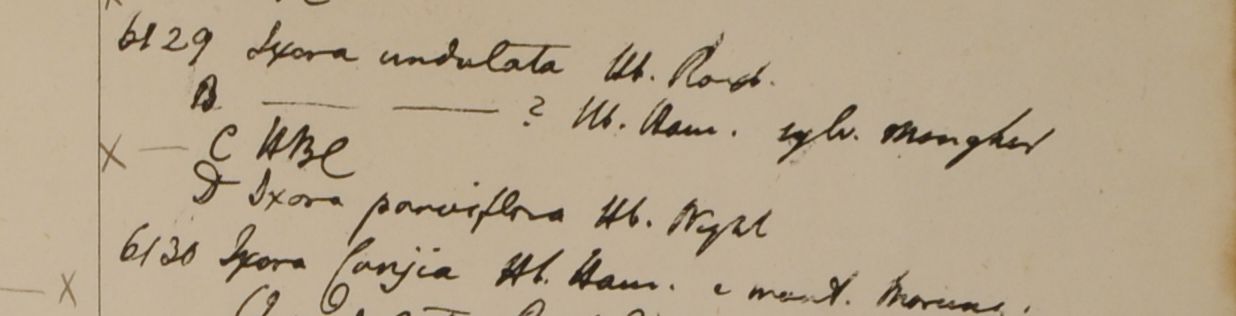 6129 Ixora undulata Hb. Roxb.
B —— —— ? Hb. Ham. sylv. Mongher
X — C HBC
D Ixora parviflora Hb. Wight
6130 Ixora Conjia Hb. Ham. e mont. Morung.
— X